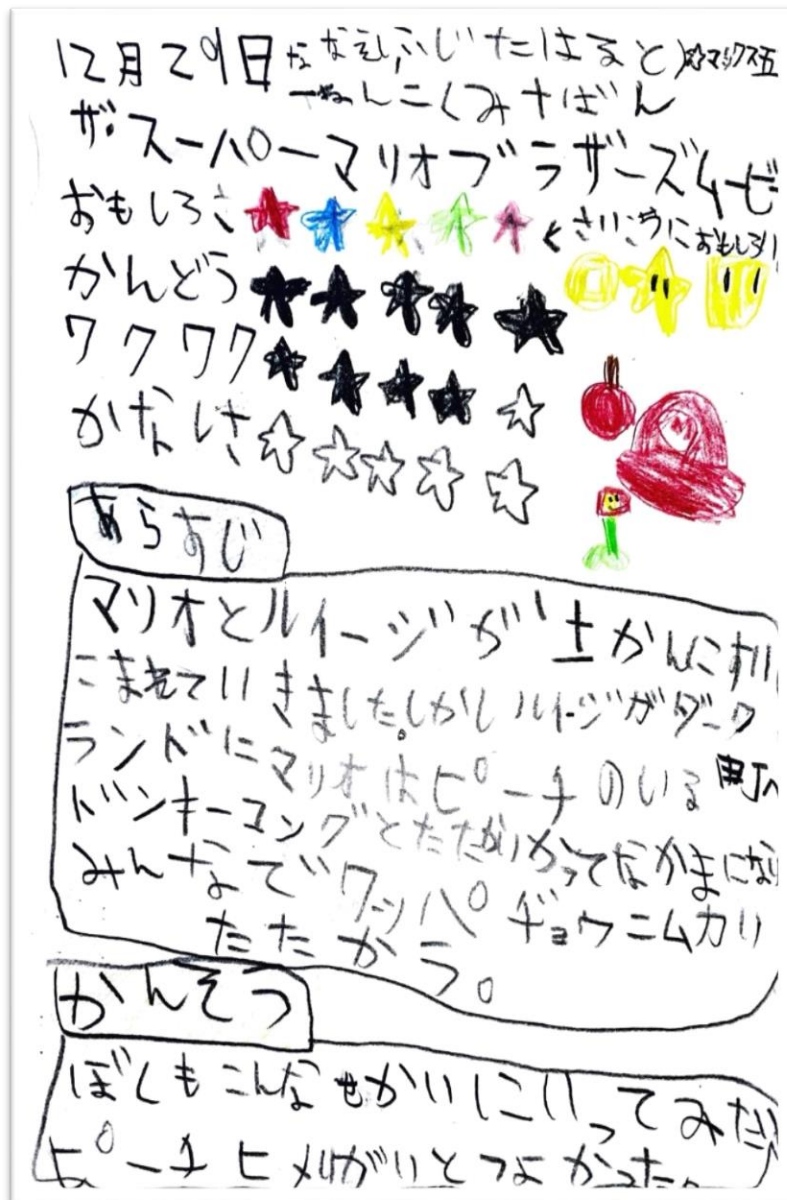 12月29日 ふじたはると ☆マックス五
一ねんにくみ さばん
ザ・スーパーマリオブラザーズムービ
おもしろさ ★★★★★ < さいこうにおもしろい
かんどう ★★★★★
ワクワク ★★★★☆
かなしさ ☆☆☆☆☆
あらすじ
マリオとルイージが土かんにすい
こまれていきました。しかしルイージがダーク
ランドにマリオはピーチのいる町へ
ドンキーコングとたたかいかってなかまになり
みんなでクッパ ギョウニムカリ
たたかう。
かんそう
ぼくもこんなせかいにいってみたい
ピーチヒメがいとつよかった。